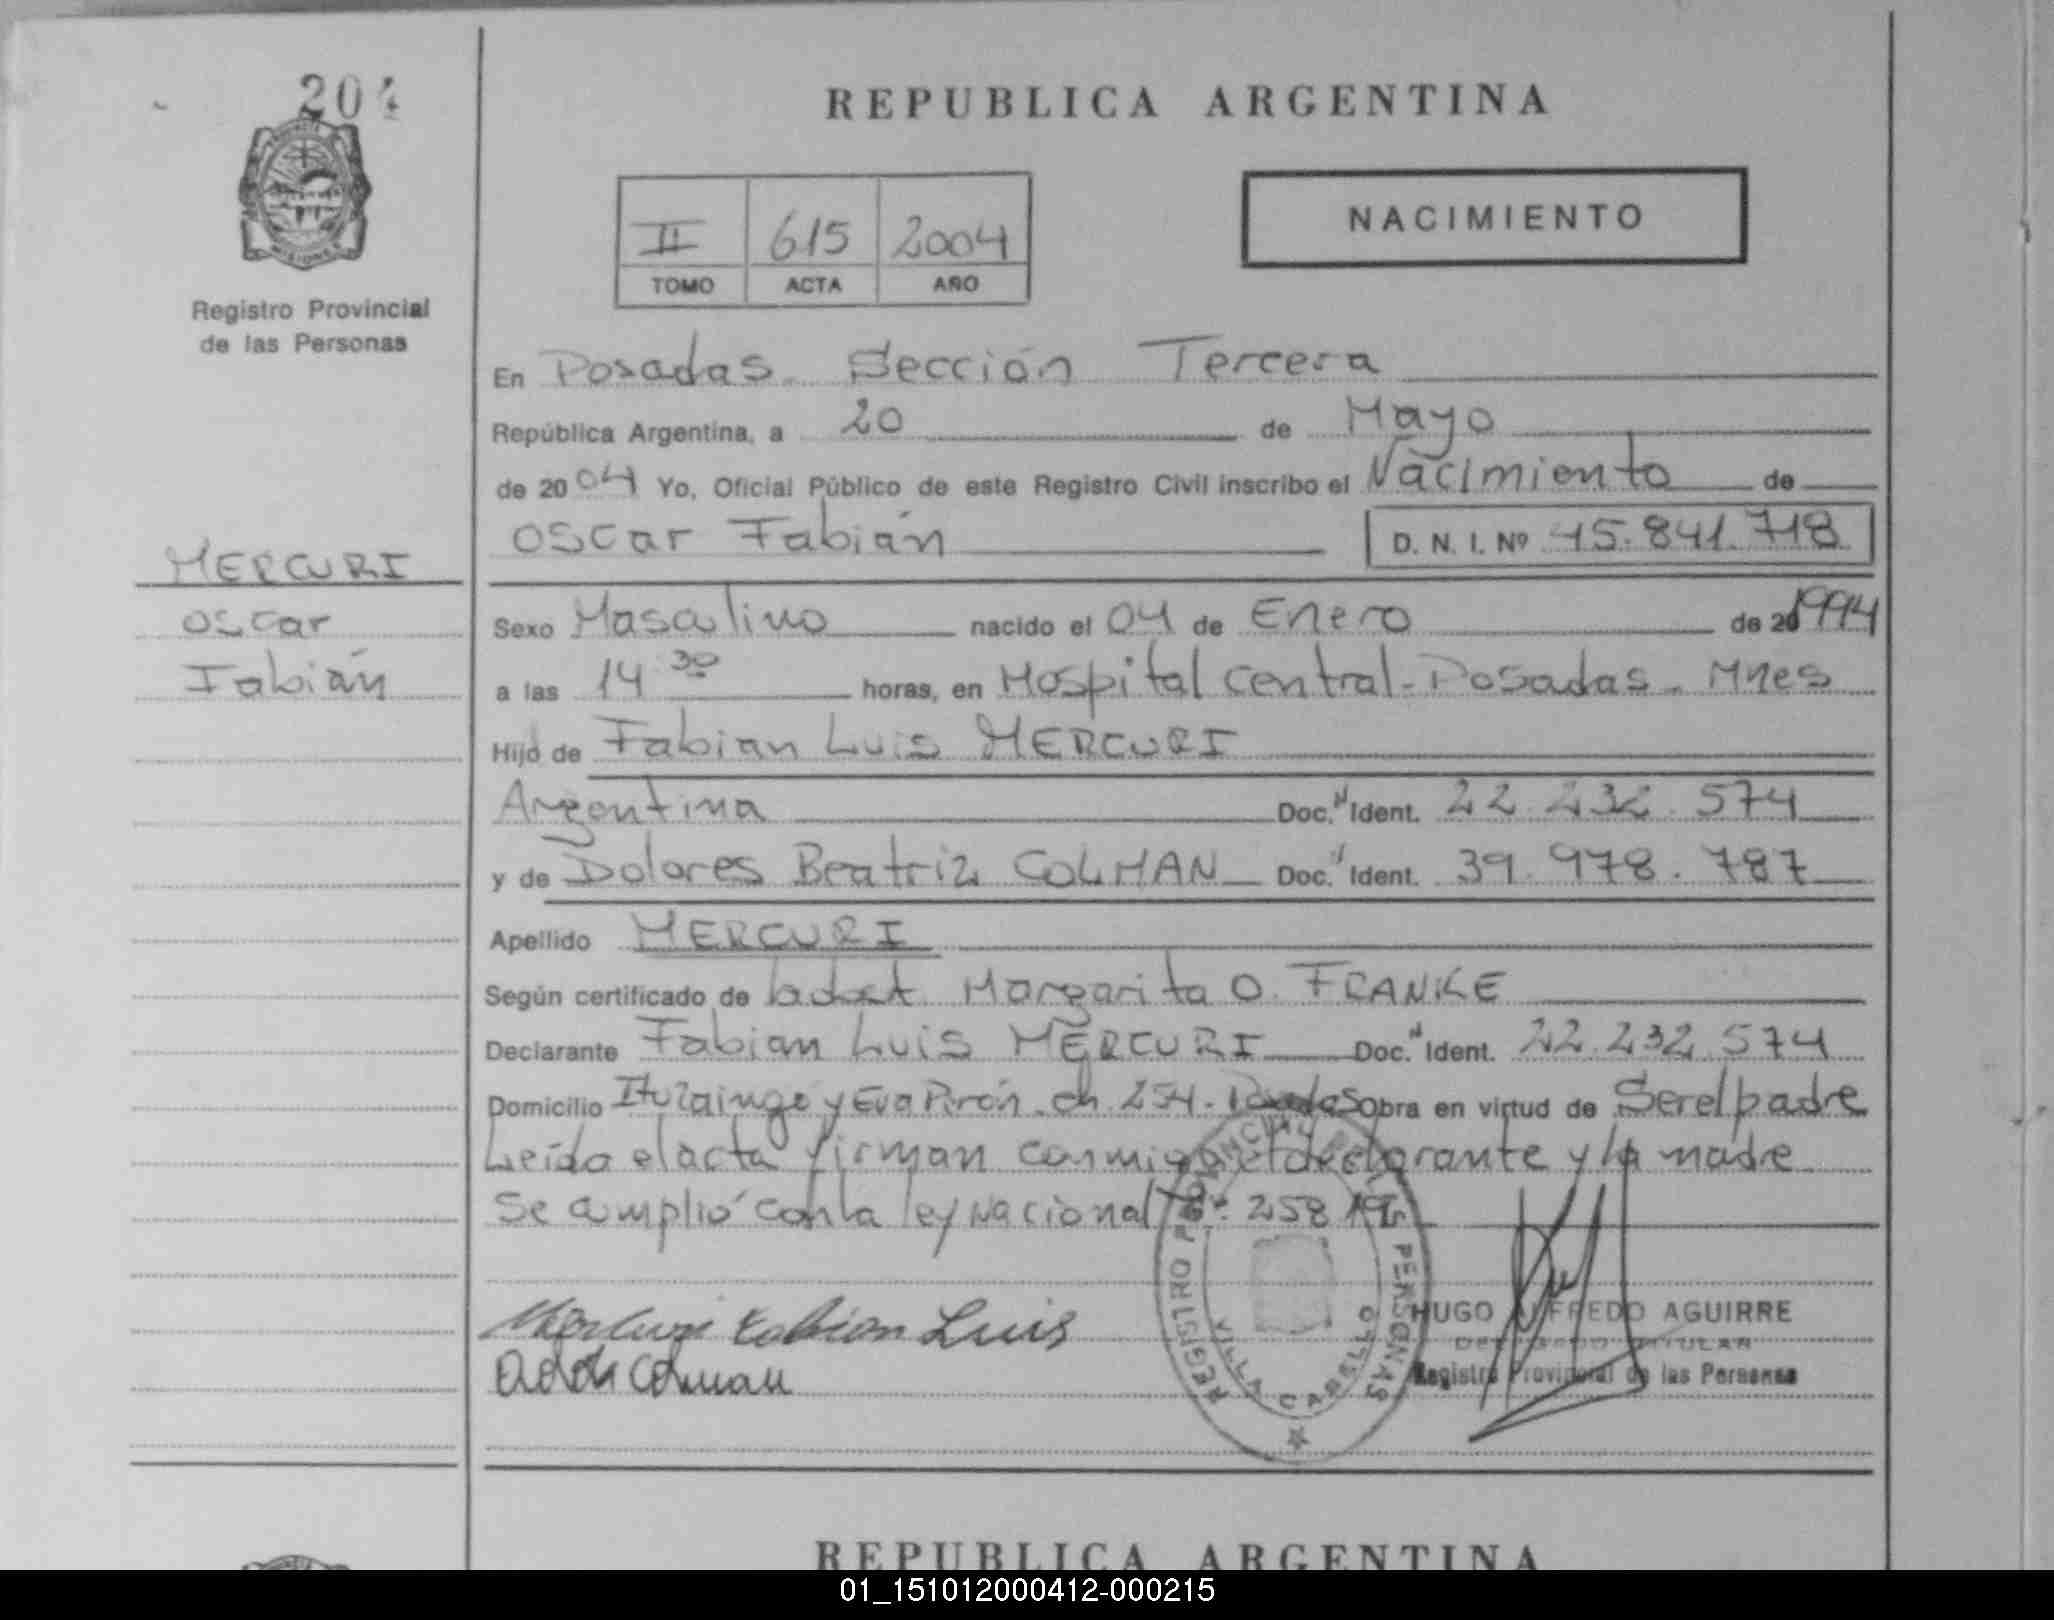 204
REPUBLICA ARGENTINA
MISIONES
II 615 2004
TOMO ACTA AÑO
NACIMIENTO
Registro Provincial
de las Personas
En Posadas. Sección Tercera
República Argentina, a 20 de Mayo
de 2004 Yo, Oficial Público de este Registro Civil inscribo el Nacimiento de
Oscar Fabián D. N. I. Nº 45.841.718
MERCURI
Oscar
Fabián
Sexo Masculino nacido el 04 de Enero de 1994
a las 14 30 horas, en Hospital Central - Posadas. Mnes
Hijo de Fabian Luis MERCURI
Argentina Doc. N Ident. 22.232.574
y de Dolores Beatriz COLMAN Doc. N Ident. 39.978.787
Apellido MERCURI
Según certificado de Margarita O. FRANKE
Declarante Fabian Luis MERCURI Doc. N Ident. 22.232.574
Domicilio Ituzaingo y Eva Perón. ch 254. Posadas Obra en virtud de Ser el padre
Leída el acta firman conmigo el declarante y la madre
Se cumplió con la ley Nacional Nº: 25819
REGISTRO PROVINCIAL DE LAS PERSONAS
VILLA CABELLO
Mercuri Fabian Luis
Colman
HUGO ALFREDO AGUIRRE
DELEGADO TITULAR
Registro Provincial de las Personas
REPUBLICA ARGENTINA
01_151012000412-000215